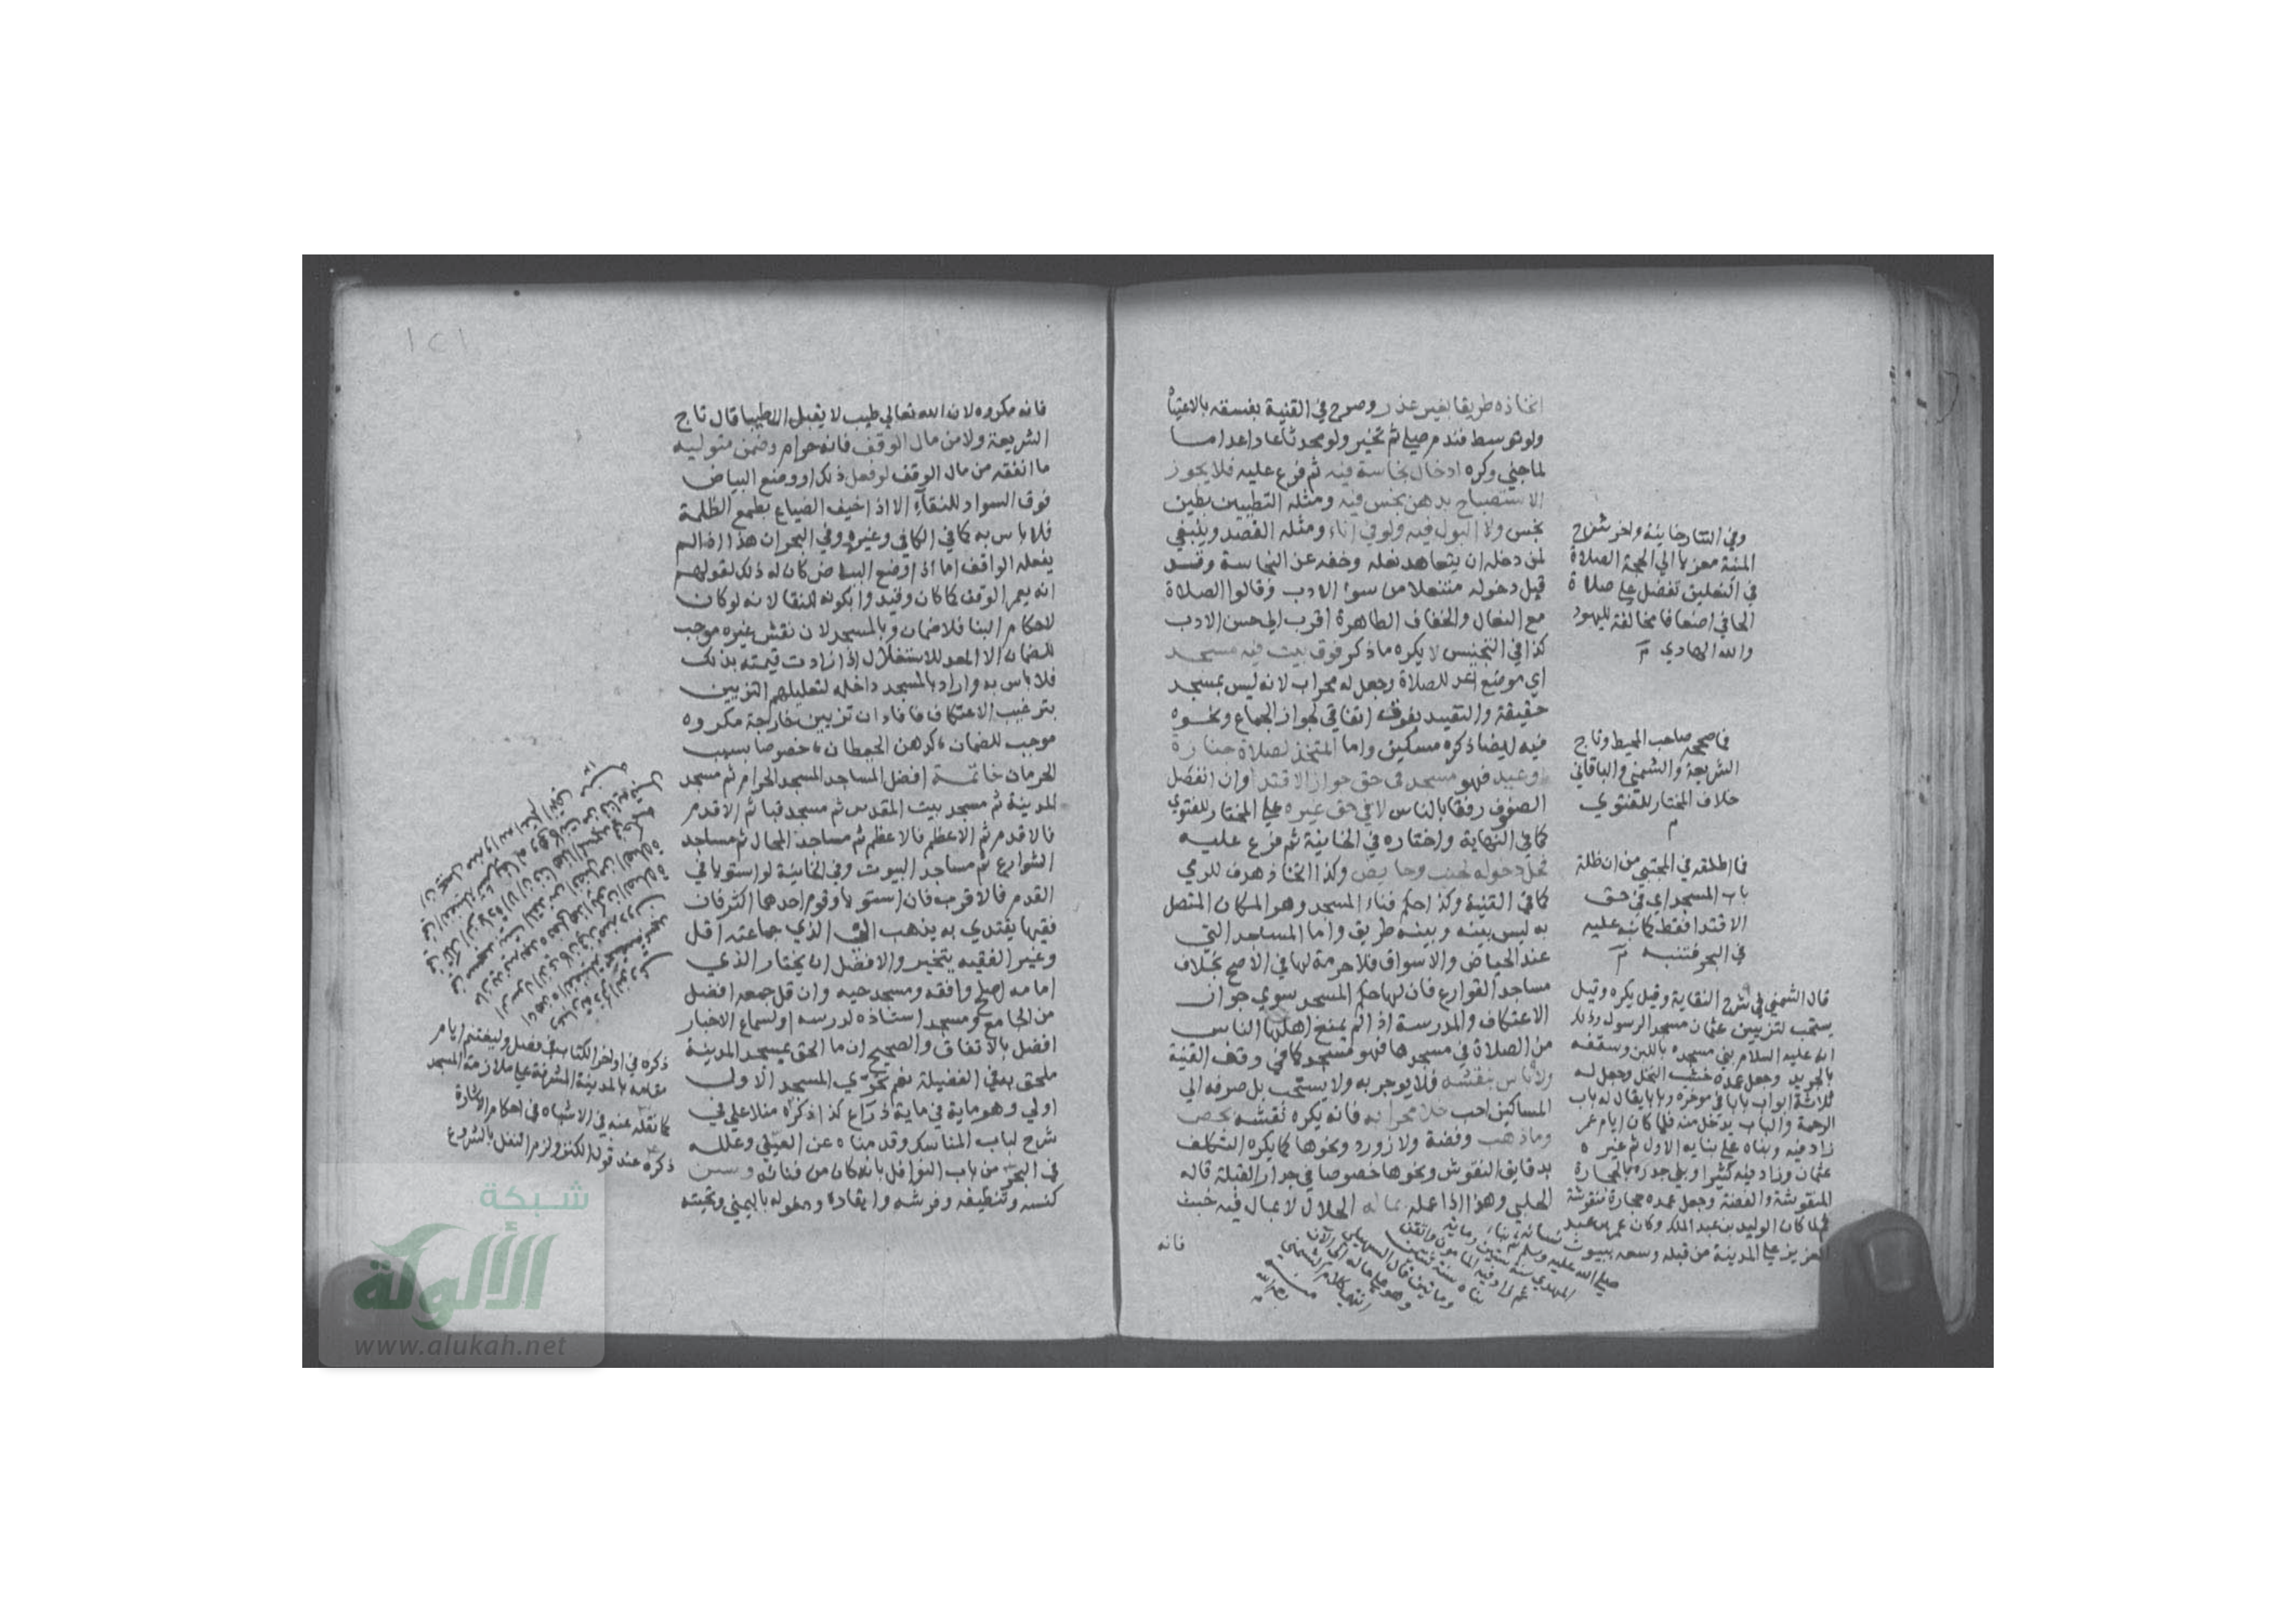 اتخاذه طريقا بغير عذر وصرح في القنية بفسقه بالاعتياد
ولو توسط فندم صلي ثم تخير ولو محدثا عاد
لما جني وكره ادخال نجاسة فيه ثم فرع عليه فلا يجوز
الاستصباح بدهن نجس فيه ومثله التطيين بطين
نجس ولا البول فيه ولو في اناء ومثله الفصد وينبغي
لمن دخله ان يتعاهد نعله وخفه عن النجاسة وقد
قيل دخوله متنعلا من سوء الادب وقالوا الصلاة
مع النعال والخفاف الطاهرة اقرب الي حسن الادب
كذا في التجنيس لا يكره ما ذكر فوق بيت فيه مسجد
اي موضع اعد للصلاة وجعل له محراب لانه ليس بمسجد
حقيقة والتقييد بفوق اتفاقي لجواز الجماع ونحوه
فيه ايضا ذكره مسكين واما المتخذ لصلاة جنازة
اوعيد فهو مسجد في حق جواز الاقتدا وان انفصل
الصفوف رفقا بالناس لا في حق غيره علي المختار للفتوي
كما في النهاية واختاره في الخانية ثم فرع عليه
فحل دخوله لجنب وحايض وكذا اتخاذ هدف للرمي
كما في القنية وكذا حكم فناء المسجد وهو المكان المتصل
به ليس بينه وبينه طريق واما المساجد التي
عند الحياض والاسواق فلا حرمة لها في الاصح بخلاف
مساجد القوارع فان لها حكم المسجد سوي جواز
الاعتكاف والمدرسة اذا لم يمنع اهلها الناس
من الصلاة في مسجدها فهو مسجد كما في وقف القنية
ولا باس بنقشه فلا يوجر به ولا يستحب بل صرفه الي
المساكين احب خلا محرابه فانه يكره نقشه بجص
وماذهب وفضة ولازورد ونحوها كما يكره التكلف
بدقايق النقوش ونحوها خصوصا في جدار القبلة قاله
الحلبي وهذا اذا عمله بماله الحلال لا بمال فيه خبث
فانه
وفي التتارخانية واخر شرح
المنية معزيا الي الحجة الصلاة
في النعلين تفضل علي صلاة
الحافي اضعافا مخالفة لليهود
والله الهادي م
فما صححه صاحب المحيط وتاج
الشريعة والشمني والباقاني
خلاف المختار للفتوي
م
فما اطلقه في المجتبي من ان ظلة
باب المسجد اي في حق
الاقتدا فقط كما نبه عليه
في البحر فتنبه م
قال الشمني في شرح النقاية وقيل يكره وقيل
يستحب لتزيين عثمان مسجد الرسول وذلك
انه عليه السلام بني مسجده باللبن وسقفه
بالجريد وجعل عمده خشب النخل وجعل له
ثلاثة ابواب بابا في موخره وبابا يقال له باب
الرحمة والباب يدخل منه فلما كان ايام عمر
زاد فيه وبناه علي بنايه الاول ثم غيره
عثمان وزاد فيه كثيرا وبني جدره بالحجارة
المنقوشة والفضة وجعل عمده حجارة منقوشة
ثم لما كان الوليد بن عبد الملك وكان عمر بن عبد
العزيز علي المدينة من قبله وسعه ببيوت نسائه
صلي الله عليه وسلم ثم بناه
المهدي سنة ستين وماية
ثم زاد فيه المامون واتقن
بناه سنة
ومائتين قال السهيلي
وهو علي حاله الي الآن
انتهي كلام الشمني
فانه مكروه لان الله تعالي طيب لا يقبل الا طيبا قال تاج
الشريعة ولا من مال الوقف فانه حرام وضمن متوليه
ما انفقه من مال الوقف لو فعل ذلك او وضع البياض
فوق السواد للنقاء الا اذا خيف الضياع بطمع الظلمة
فلا باس به كما في الكافي وغيره وفي البحر ان هذا اذا لم
يفعله الواقف اما اذا وضع البياض كان له ذلك لقولهم
انه يعمر الوقف كما كان وقيدوا بكونه للنقا لانه لو كان
لاحكام البنا فلا ضمان وبالمسجد لان نقش غيره موجب
للضمان الا المعد للاستغلال اذا زادت قيمته بذلك
فلا باس به واراد بالمسجد داخله لتعليلهم التزيين
بترغيب الاعتكاف فافاد ان تزيين خارجه مكروه
موجب للضمان كدهن الحيطان خصوصا بسبب
الحرمان خاتمة افضل المساجد المسجد الحرام ثم مسجد
المدينة ثم مسجد بيت المقدس ثم مسجد قبا ثم الاقدم
فالاقدم ثم الاعظم فالاعظم ثم مساجد المحال ثم مساجد
الشوارع ثم مساجد البيوت وفي الخانية لو استويا في
القدم فالاقرب فان استويا وقوم احدهما اكثر فان
فقيها يقتدي به يذهب الي الذي جماعته اقل
وغير الفقيه يتخير والافضل ان يختار الذي
امامه اصلح وافقه ومسجد حيه وان قل جمعه افضل
من الجامع ومسجد استاذه لدرسه او لسماع الاخبار
افضل بالاتفاق والصحيح ان ما الحق بمسجد المدينة
ملحق به في الفضيلة نعم تحري المسجد الاول
اولي وهو ماية في ماية ذراع كذا ذكره منلا علي في
شرح لباب المناسك وقدمناه عن العيني وعلله
في البحر من باب النوافل بانه كان من فنائه وسن
كنسه وتنظيفه وفرشه وايقاده ودخوله باليمني وتحيته
ذكره في اواخر الكتاب في فصل وليغتنم ايام
مقامه بالمدينة المشرفة علي ملازمة المسجد
كما نقله عنه في الاشباه في احكام الاشارة
ذكره عند قول الكنز ولزم النفل بالشروع
شبكة
الألوكة
www.alukah.net